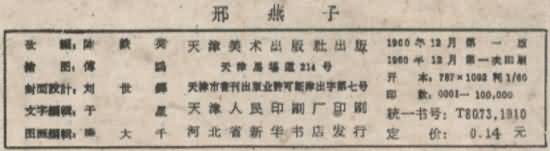 邢燕子
改編:陈 鉄 英
繪图:傅
封面設計:刘 世 鐸
文字編輯:于
图画編輯: 大 千
天津美术出版社出版
天津馬場道214号
天津市書刊出版业許可証津出字第七号
天津人民印刷厂印刷
河北省新华书店发行
1960年12月第一版
1960年12月第一次印刷
开 本:787×1092 判1/60
印 数:0001—100,000
統一书号:T8073.1910
定 价:0.14 元